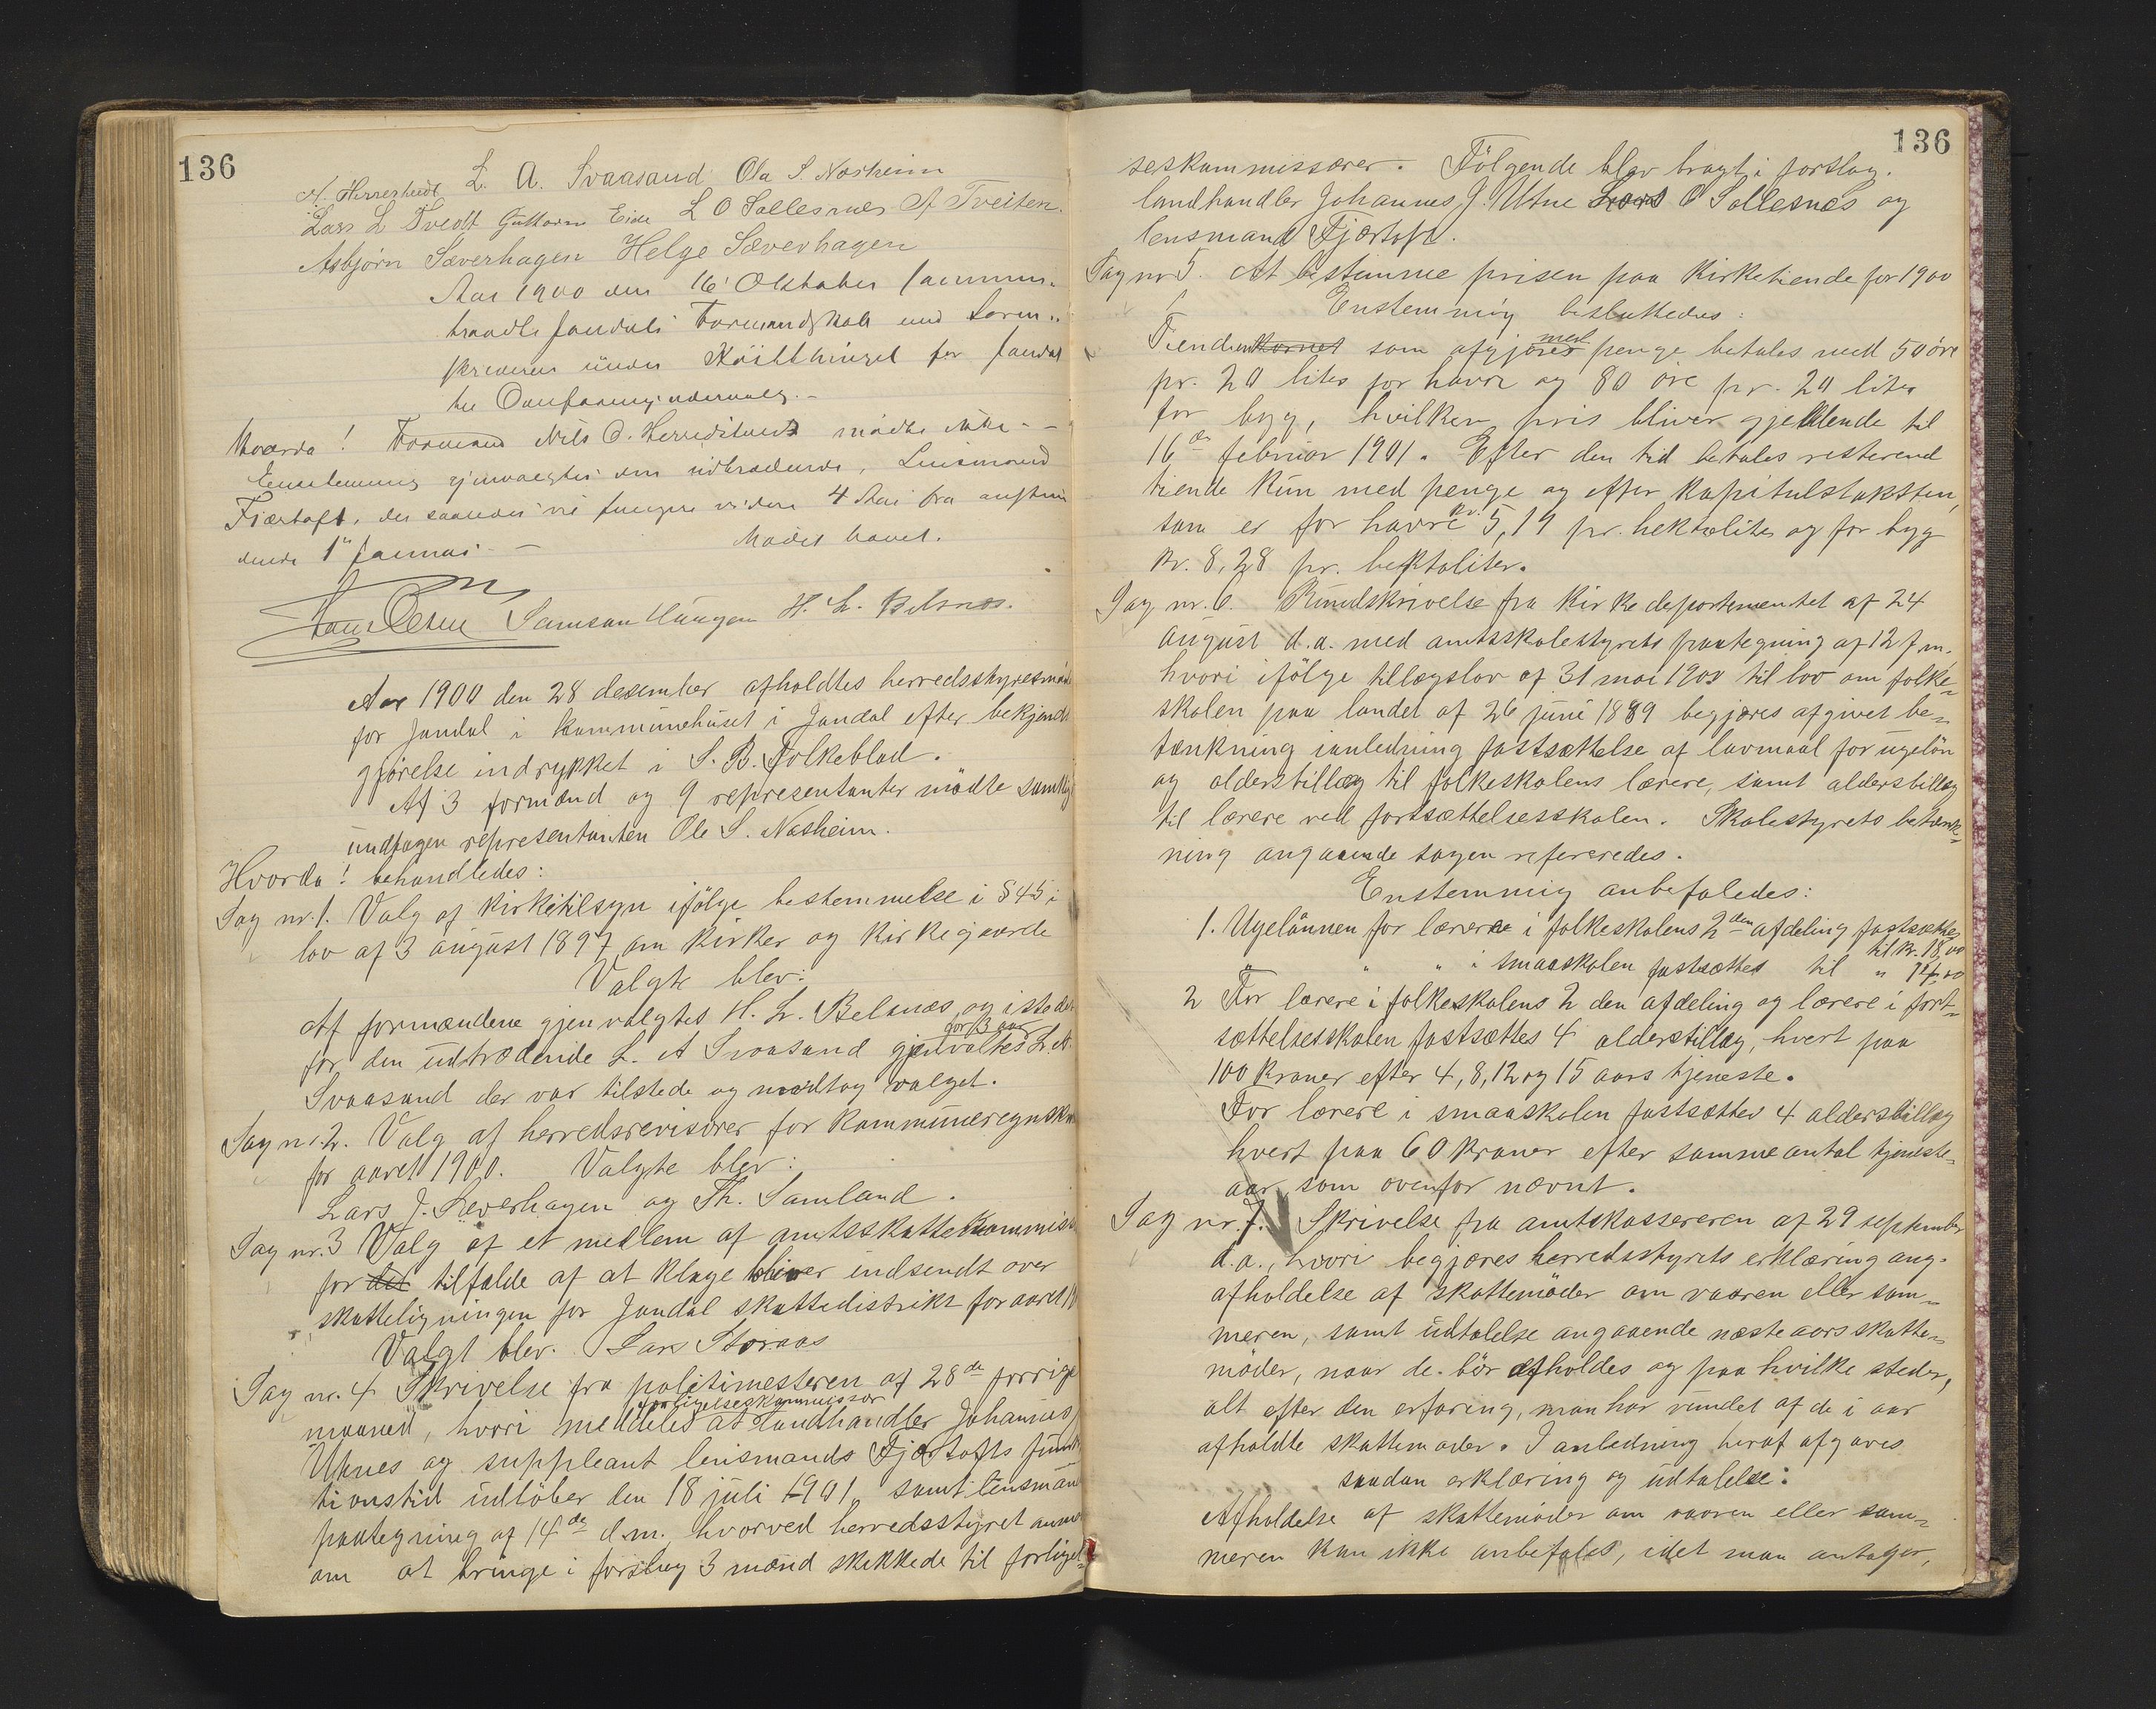 136
N. Herreshedt L. A. Svaasand Ola S. Næsheim
Lars L Tvedt Guttorm Eide L O Sollesnes A Tveiten.
Asbjørn Sæverhagen Helge Sæverhagen
Aar 1900 den 16' Oktober sammen-
traadte Jondals Formandskab med Soren-
skriveren under Høistthinget for Jondal
til
Hvorda! Formand Nils O. mødte ikke -
Enstemmig gjenvalgtes den udtrædende, Lensmand
Fjærtoft, der saaledes vil fungere videre 4 Aar fra anstun-
dende 1ste Januar. - Mødet hævet.
Samson Haugen H. L. Belsnæs.
Aar 1900 den 28 desember afholdtes herredsstyresmøde
for Jondal i kommunehuset i Jondal efter bekjendt
gjørelse indrykket i S. B. Folkeblad.
Af 3 formænd og 9 representanter mødte samtlige
undtagen representanten Ole S. Næsheim.
Hvorda! behandledes:
Sag nr. 1. Valg af kirketilsyn ifølge bestemmelse i § 45 i
lov af 3 august 1897 om kirker og kirkegaarde
Valgte blev:
Af formændene gjenvalgtes H. L. Belsnæs og istedet
for 3 aar
for den udtrædende L. A Svaasand gjenvaltes L. A.
Svaasand der var tilstede og modtog valget.
Sag nr. 2. Valg af herredsrevisorer for kommuneregnskab
for aaret 1900. Valgte blev:
Lars J. Sæverhagen og Th. Samland.
Sag nr. 3 Valg af et medlem af amtsskattekommis
for det tilfælde af at klage bliver indsendt over
skatteligningen for Jondal skattedistrikt for aaret 19
Valgt blev. Lars Storaas
Sag nr. 4 Skrivelse fra politimesteren af 28de forrige
forligelseskommissær
maaned, hvori meddeles at landhandler Johannes
Utnes og suppleant lensmands Fjærtofts funk
tionstid udløber den 18 juli 1901, samt lensmand
paategning af 14de d.m. hvorved herredsstyret anmo
om at bringe i forslag 3 mænd skikkede til forligel-
136
seskommissærer. Følgende blev bragt i forslag.
landhandler Johannes J. Utne Lars O Sollesnes og
lensmand Fjærtoft.
Sag nr 5. At bestemme prisen paa kirketiende for 1900
Enstemmig besluttedes:
med
Tienden kornet som afgjøres penge betales med 50 øre
pr. 20 liter for havre og 80 øre pr. 20 liter
for byg, hvilken pris bliver gjeldende til
16de februar 1901. Efter den tid betales resterend
tiende kun med penge og efter kapitulstaksten,
som er for havre kr. 5,19 pr. hektoliter og for byg
kr. 8,28 pr. hektoliter.
Sag nr. 6. Rundskrivelse fra kirkedepartementet af 24
august d.a. med amtsskolestyrets paategning af 12 f.m.
hvori ifølge tillægslov af 31 mai 1900 til lov om folke-
skolen paa landet af 26 juni 1889 begjæres afgivet be-
tænkning ianledning fastsættelse af lavmaal for ugeløn
og alderstillæg til folkeskolens lærere, samt alderstillæg
til lærere ved fortsættelsesskolen. Skolestyrets betænk-
ning angaaende sagen refereredes.
Enstemmig anbefaledes:
1. Ugelønnen for lærere i folkeskolens 2den afdeling fastsættes
til kr. 18,00
" " " i smaaskolen fastsættes til " 14,00
2 For lærere i folkeskolens 2 den afdeling og lærere i fort-
sættelsesskolen fastsættes 4 alderstillæg, hvert paa
100 kroner efter 4, 8, 12 og 15 aars tjeneste.
For lærere i smaaskolen fastsættes 4 alderstillæg
hvert paa 60 kroner efter samme antal tjeneste-
aar som ovenfor nævnt.
Sag nr. 7. Skrivelse fra amtskassereren af 29 september
d.a., hvori begjæres herredsstyrets erklæring ang.
afholdelse af skattemøder om vaaren eller som-
meren, samt udtalelse angaaende næste aars skatte-
møder, naar de bør afholdes og paa hvilke steder,
alt efter den erfaring, man har vundet af de i aar
afholdte skattemøder. I anledning heraf afgaves
saadan erklæring og udtalelse:
Afholdelse af skattemøder om vaaren eller som-
meren kan ikke anbefales, idet man antager,